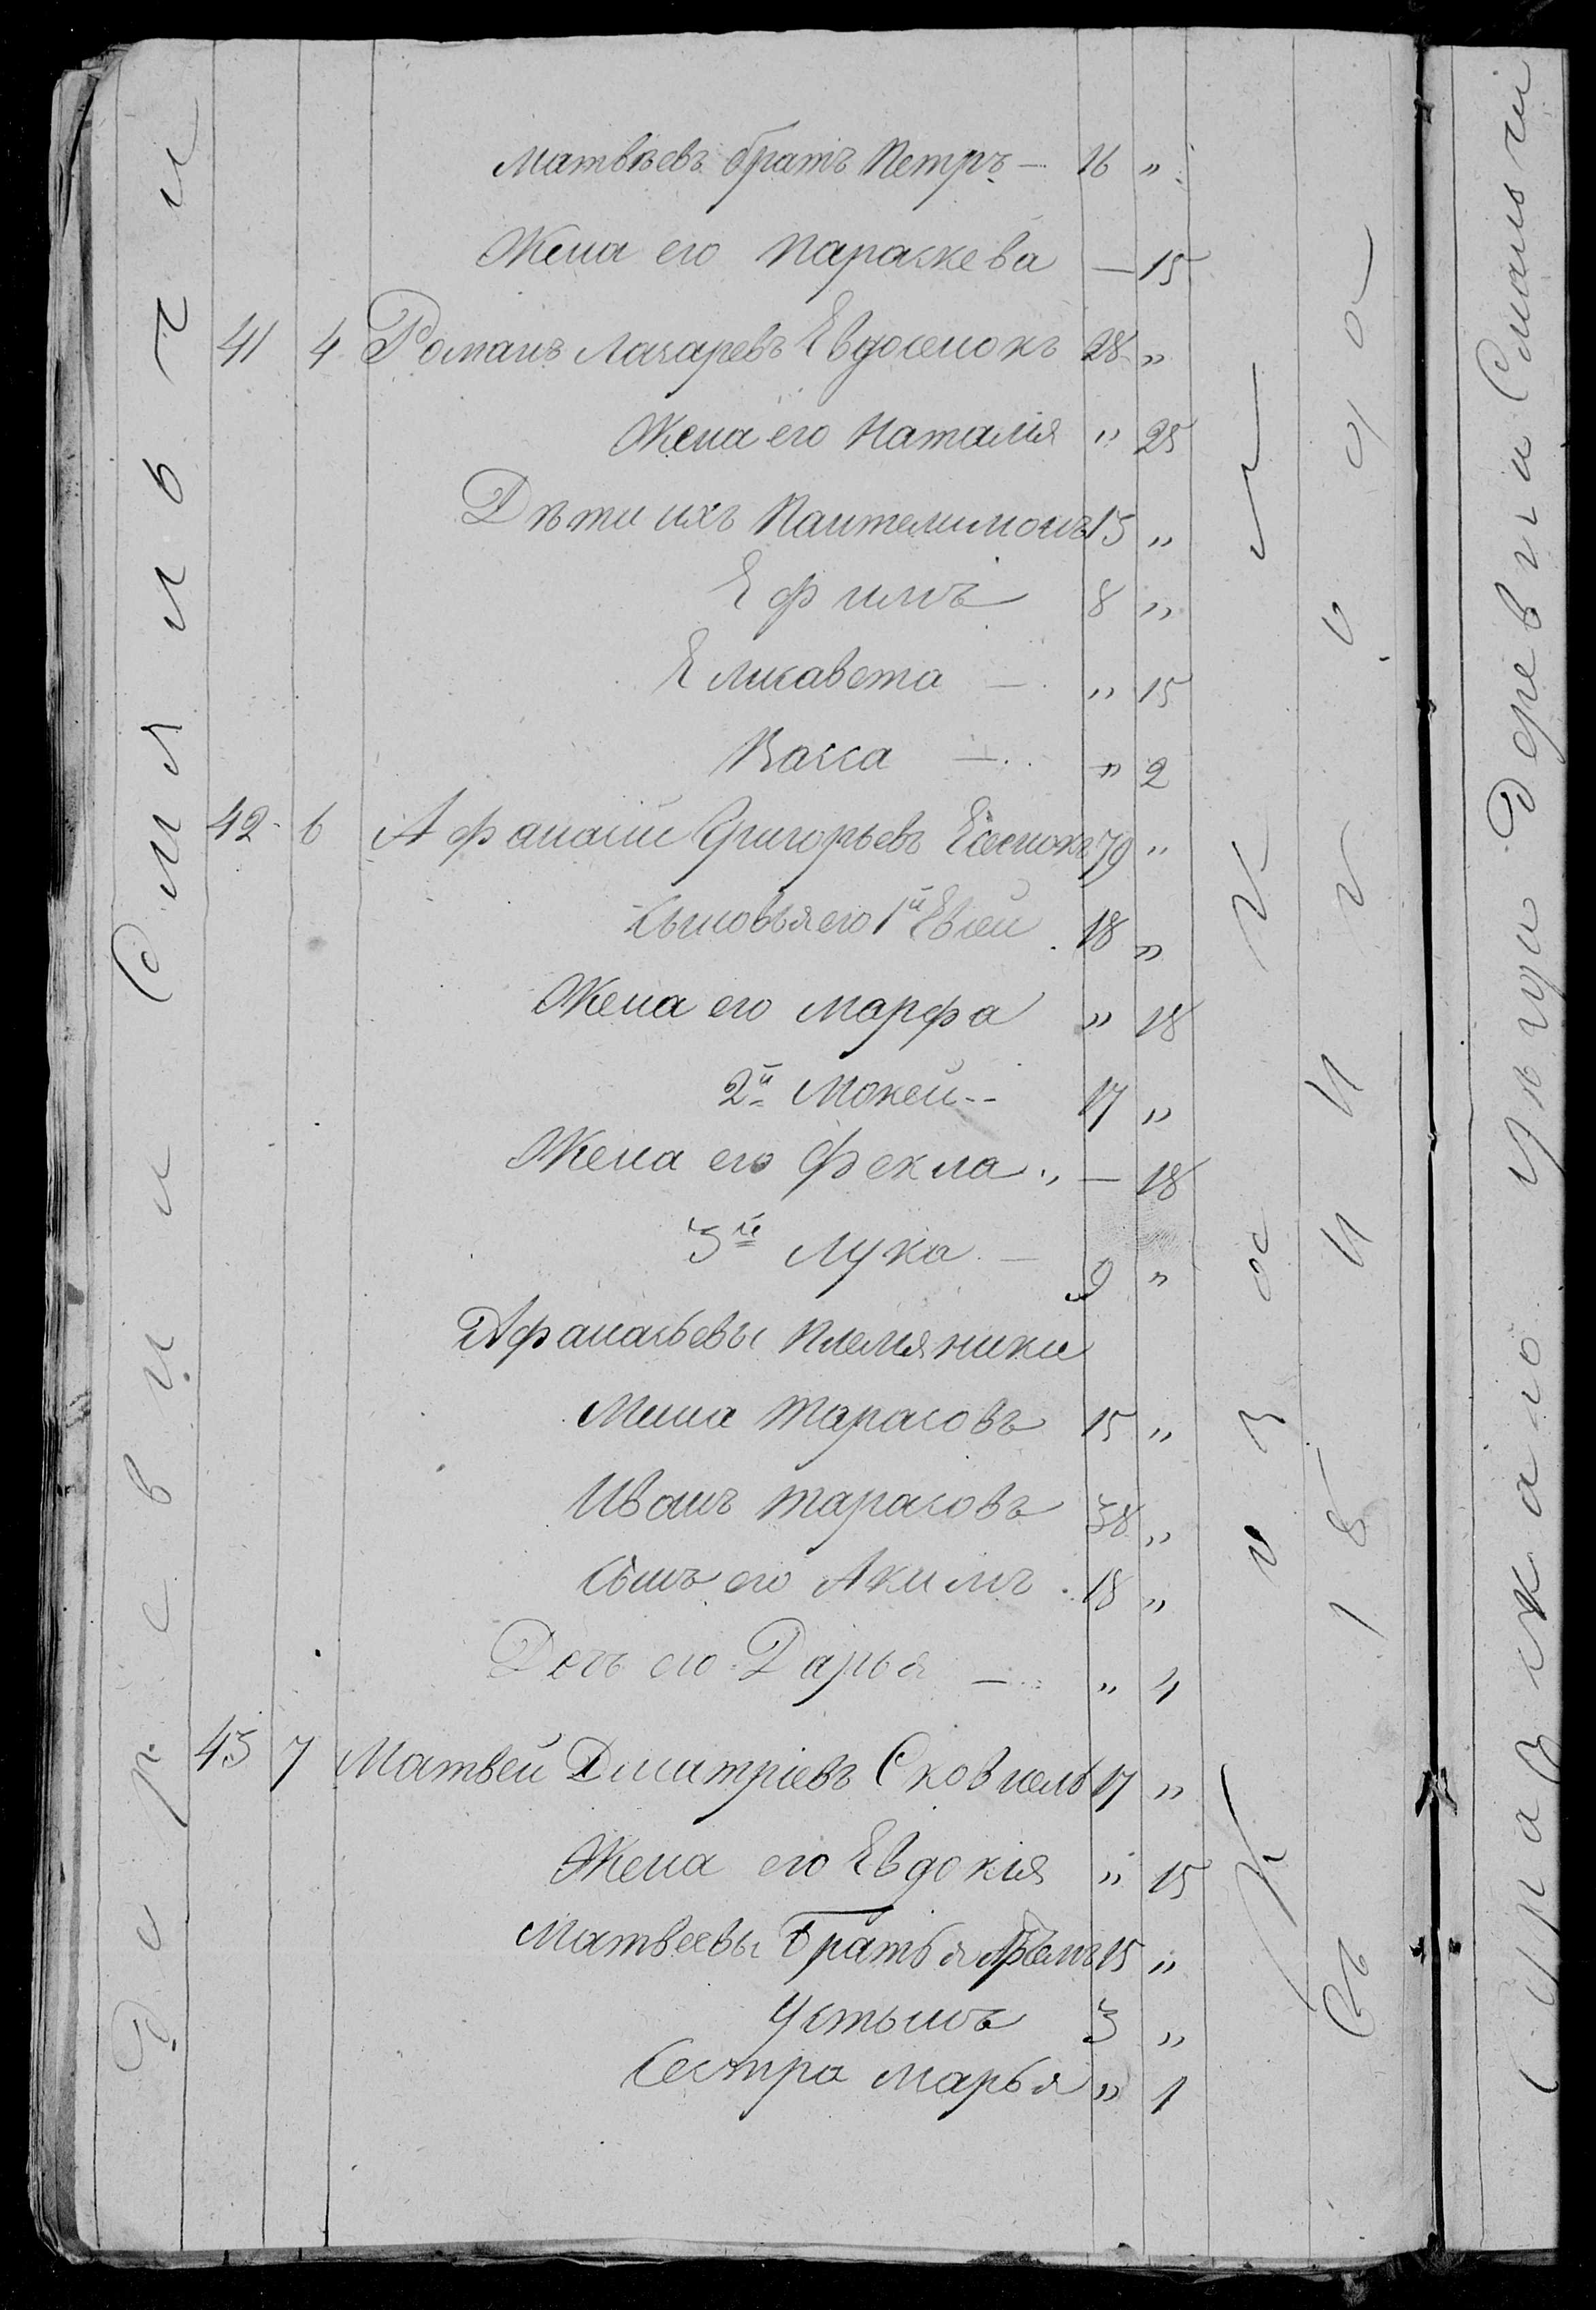 Матвѣевъ братъ Петръ — 16 "
Жена его Параскева — 15
41 4 Романъ Лазаревъ Евдосенокъ 28 "
Жена его Наталія " 25
Дѣти ихъ Пантелимонъ 15 "
Ефимъ 8 "
Елисавета — " 15
Васса — " 2
42 6 Афанасій Григорьевъ 79 "
Сыновья его 1й Евсей 18 "
Жена его Марфа " 18
2й Мокей -- 17 "
Жена его Фекла " — 18
3й Лука — 9 "
Афанасьевы племяники
Мина Тарасовъ 15 "
Иванъ Тарасовъ 38 "
Сынъ его Акимъ 18 "
Дочь его Дарья — " 4
43 7 Матвей Дмитріевъ 17 "
Жена его Евдокія " 15
Матвеевы братья 15 "
Устинъ 3 "
Сестра Марья " 1
деревни